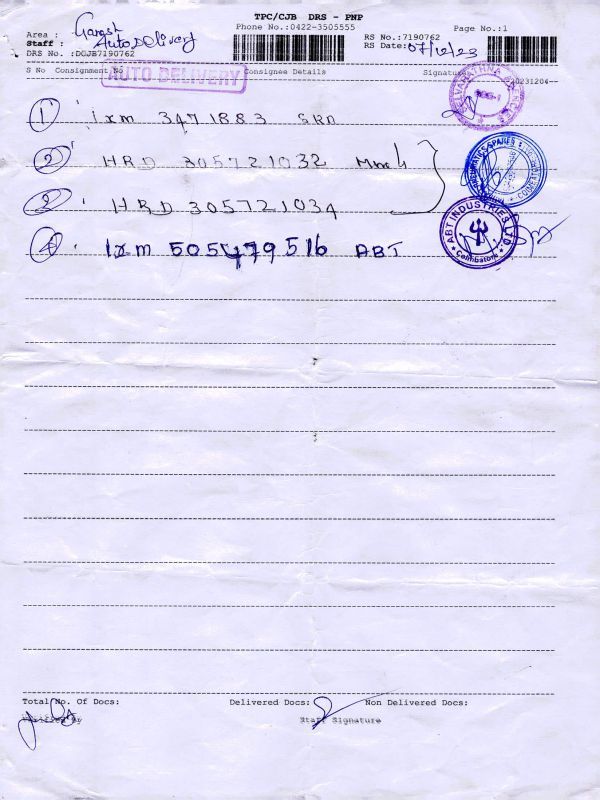 TPC/CJB DRS - PNP
Phone No.:0422-3505555 Page No.:1
Area : Ganesh
Staff : Auto Delivery
RS No.:7190762
DRS No. :DCJB7190762 RS Date: 07/12/23
S No Consignment No Consignee Details Signature 20231204
AUTO DELIVERY
1 Ixm 3471883 SRD
2 HRD 305721032
3 HRD 305721034
4 Ixm 505479516 ABT
ABT INDUSTRIES LTD
Coimbatore
Total No. Of Docs: Delivered Docs: Non Delivered Docs:
Verified By Staff Signature